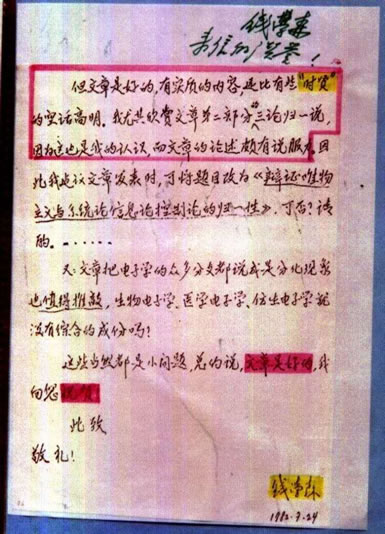 钱学森
来信的
但文章是好的,有实质的内容,是比有些"时贤"
的空话高明。我尤其欣赏文章第二部分"三论归一"说,
因为这也是我的认识,而文章的论述颇有说服力。因
此我建议文章发表时,可将题目改为《辩证唯物
主义与系统论信息论控制论的归一性》,可否?请
酌。……
又:文章把电子学的众多分支都说成是分化现象
也值得推敲,生物电子学、医学电子学、仿生电子学就
没有综合的成份吗?
这些当然都是小问题,总的说,文章是好的,我
向您祝贺!
此致
敬礼!
钱学森